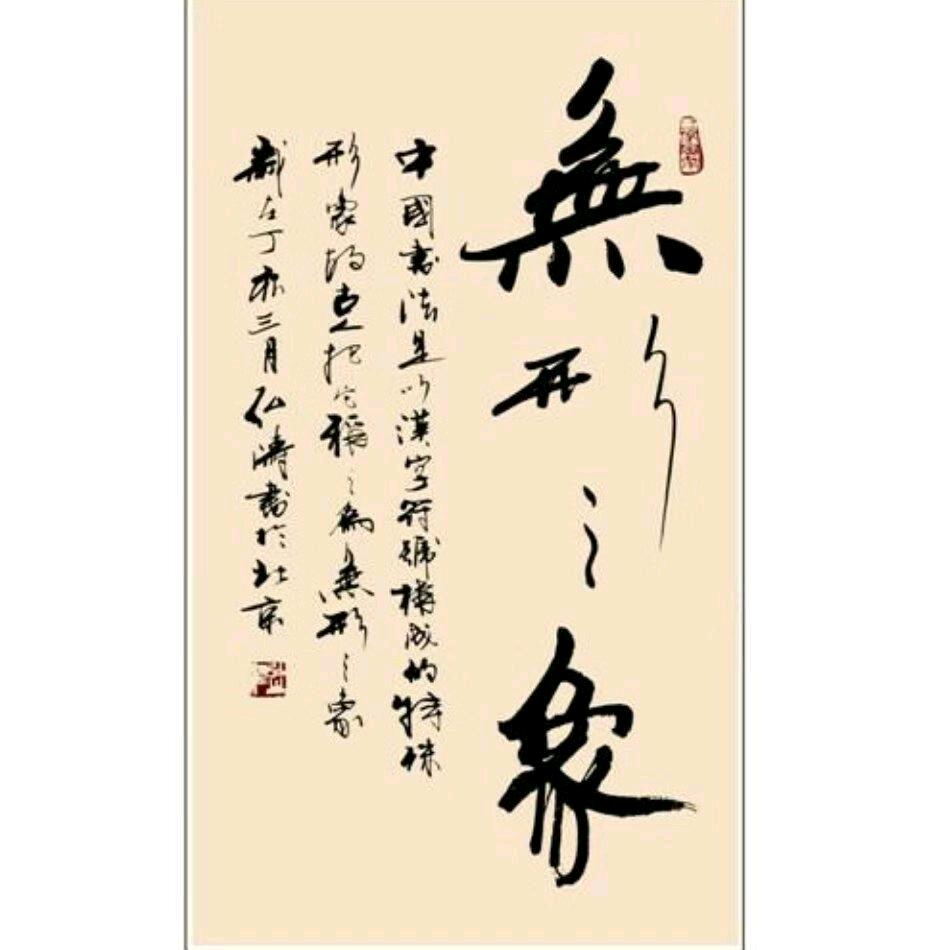 無形之象
中國書法是以漢字符號構成的特殊
形象古人把它稱之為無形之象
歲在丁三月弘濤書於北京